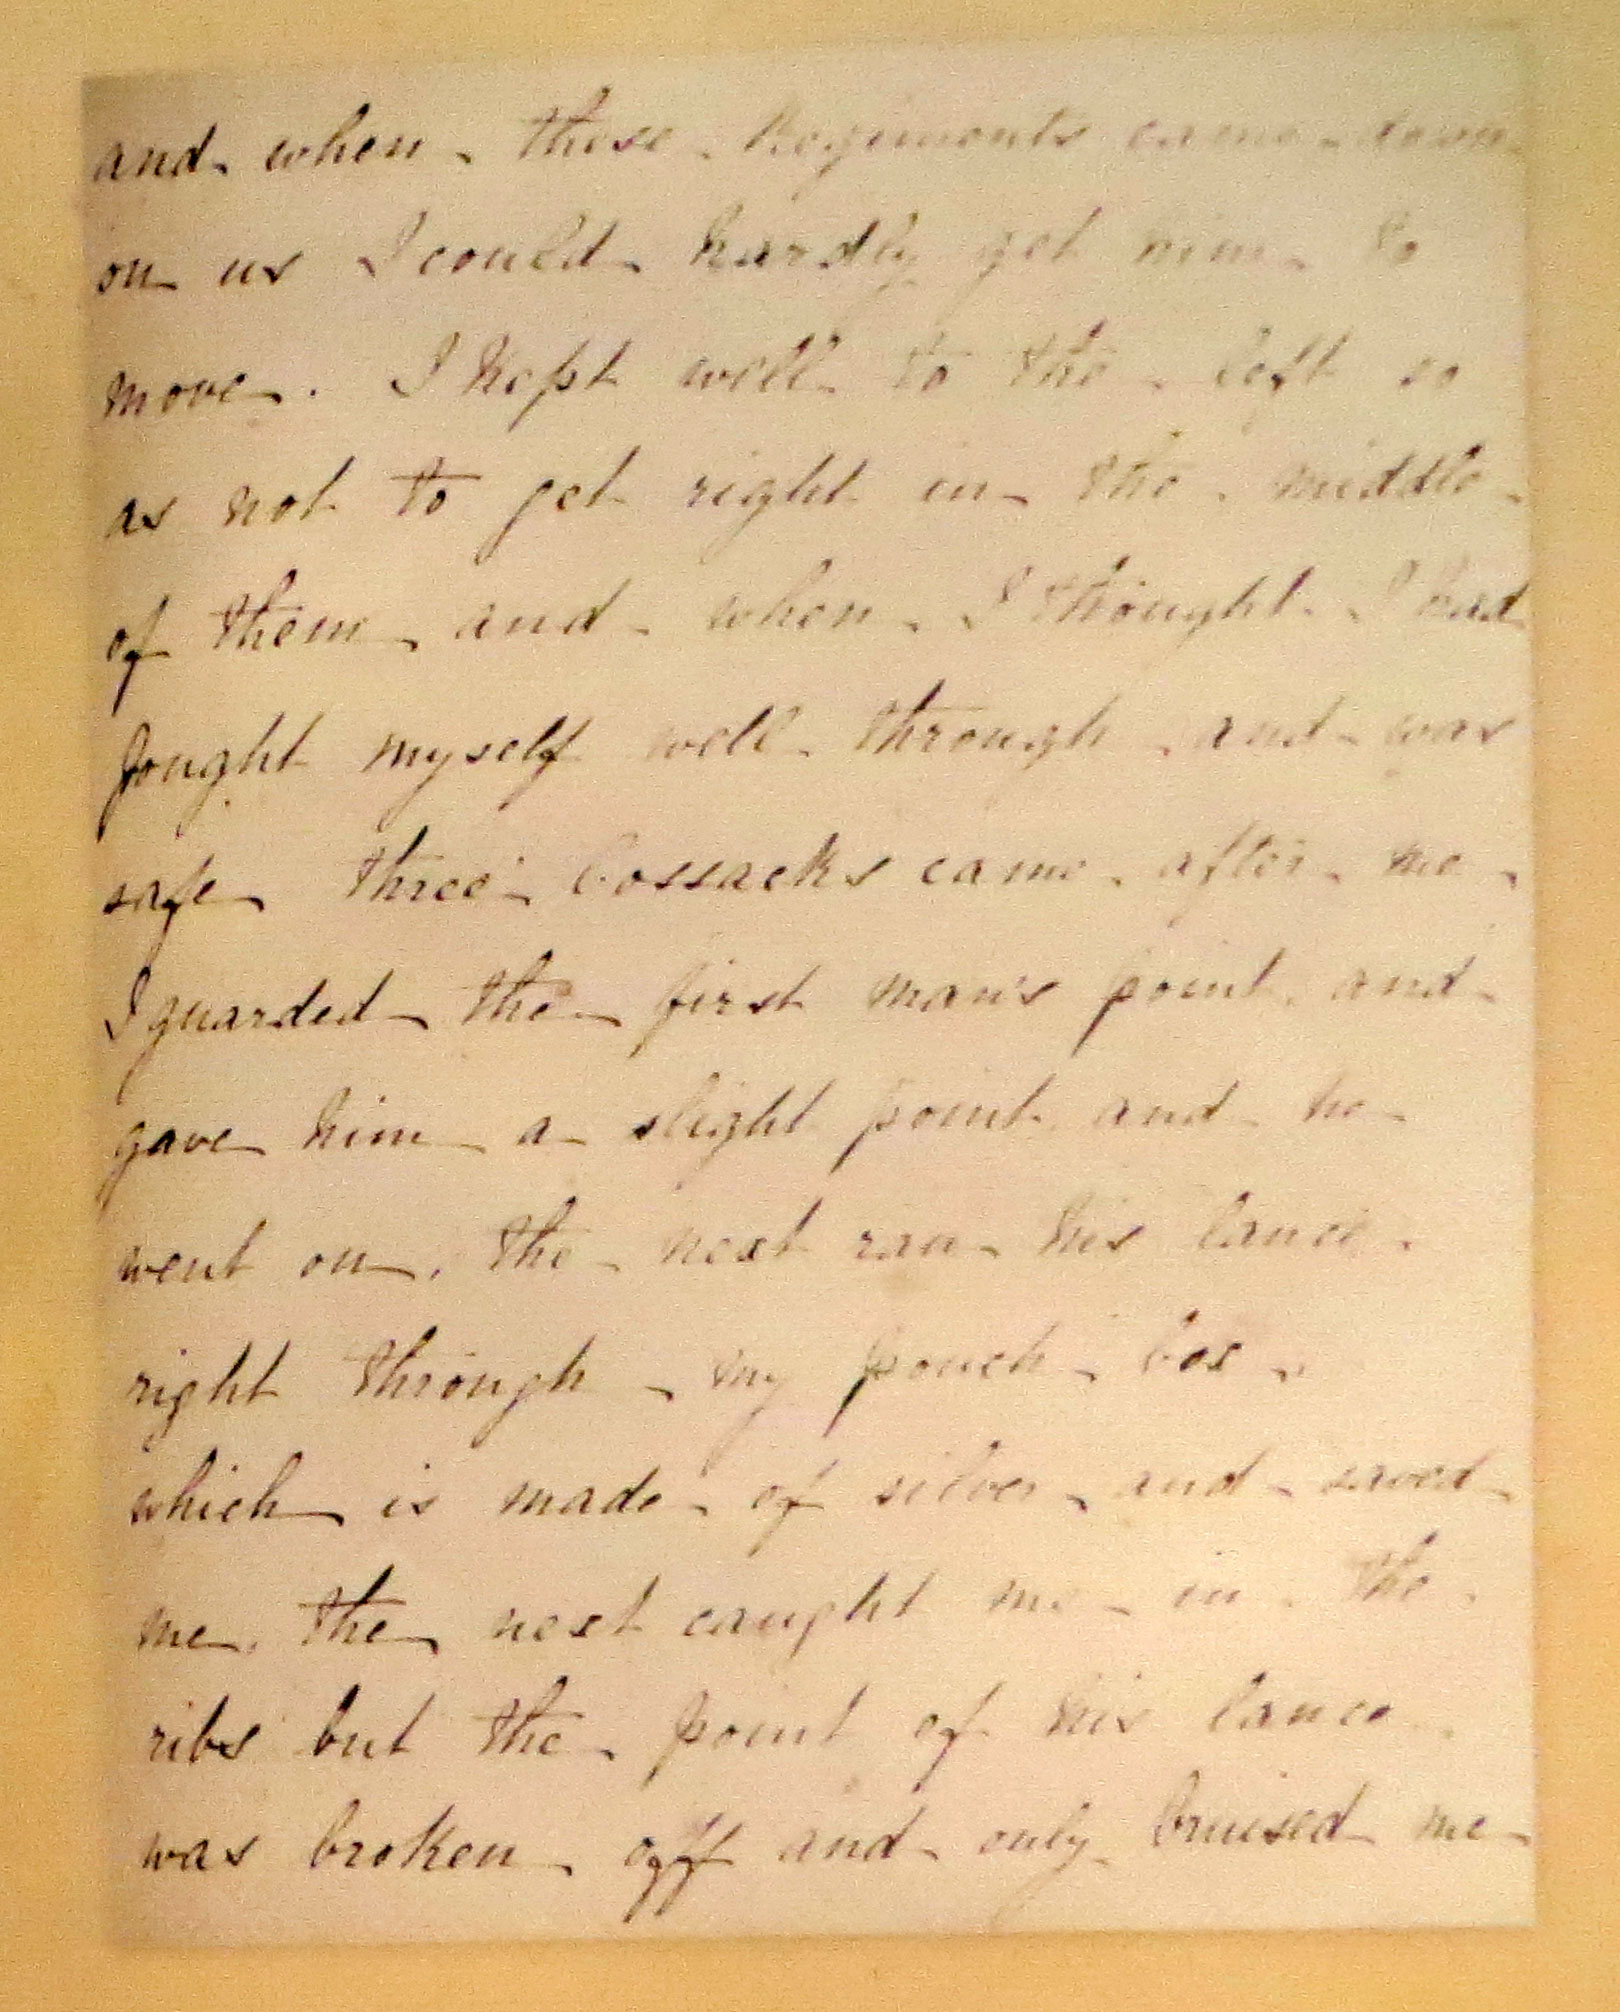 and when these Regiments came down
on us I could hardly get him to
move. I kept well to the left so
as not to get right in the middle
of them and when I thought I had
fought myself well through and was
safe three Cossacks came after me
I guarded the first man's point and
gave him a slight point and he
went on, the next ran his lance
right through my pouch box
which is made of silver and saved
me, the next caught me in the
ribs but the point of his lance
was broken off and only bruised me